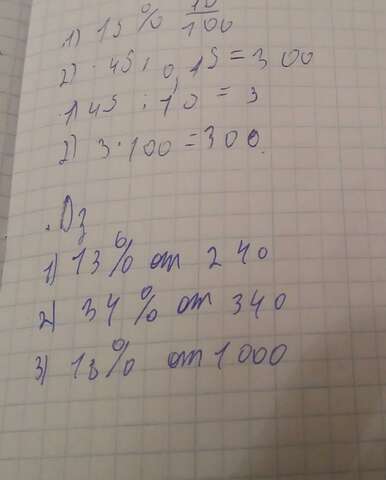 1) 15% 10/100
2) 45 : 0,15 = 300
1) 45 : 10 = 3
2) 3 · 100 = 300.
Дз
1) 13% от 240
2) 34% от 340
3) 18% от 1000